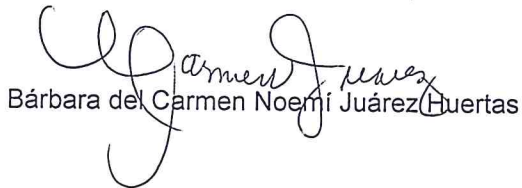 Carmen Juarez
Bárbara del Carmen Noemí Juárez Huertas